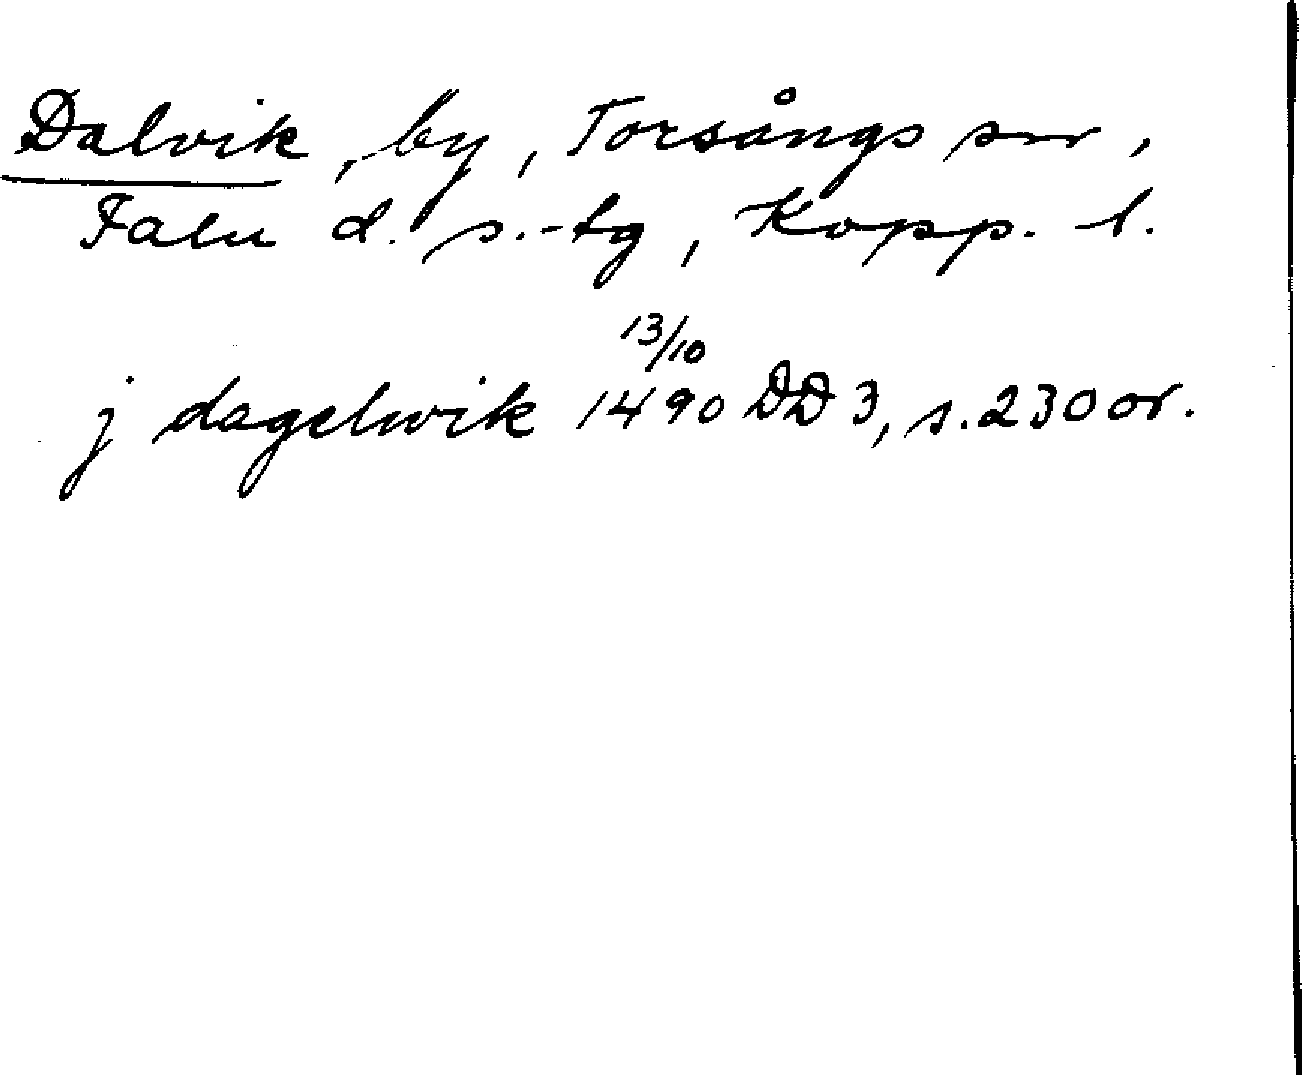 Dalvik, by, Torsångs sn,
Falu d. s.-tg, Kopp. l.
13/10
j dagelwik 1490 DD 3, s. 230 or.